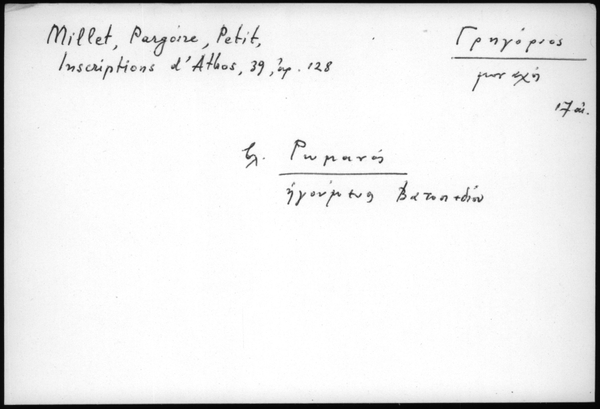 Millet, Pargoire, Petit,
Inscriptions d'Athos, 39, ἀρ. 128
Γρηγόριος
μοναχός
17 αἰ.
βλ. Ρωμανός
ἡγούμενος Βατοπεδίου